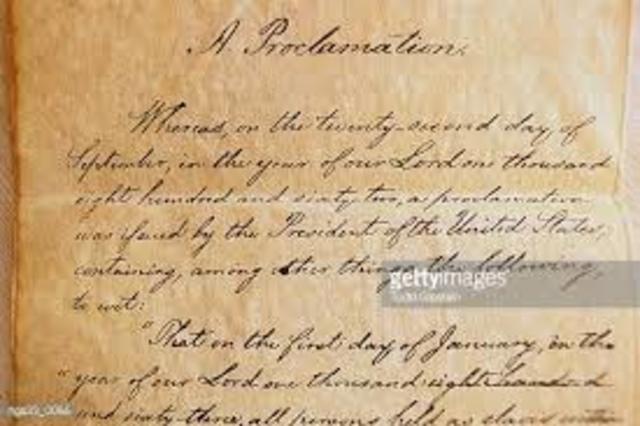 A Proclamation.
Whereas, on the twenty-second day of
September, in the year of our Lord one thousand
eight hundred and sixty-two, a proclamation
was issued by the President of the United States,
containing, among other things, the following,
to wit:
gettyimages
"That on the first day of January, in the
"year of our Lord one thousand eight hundred
and sixty-three, all persons held as slaves within